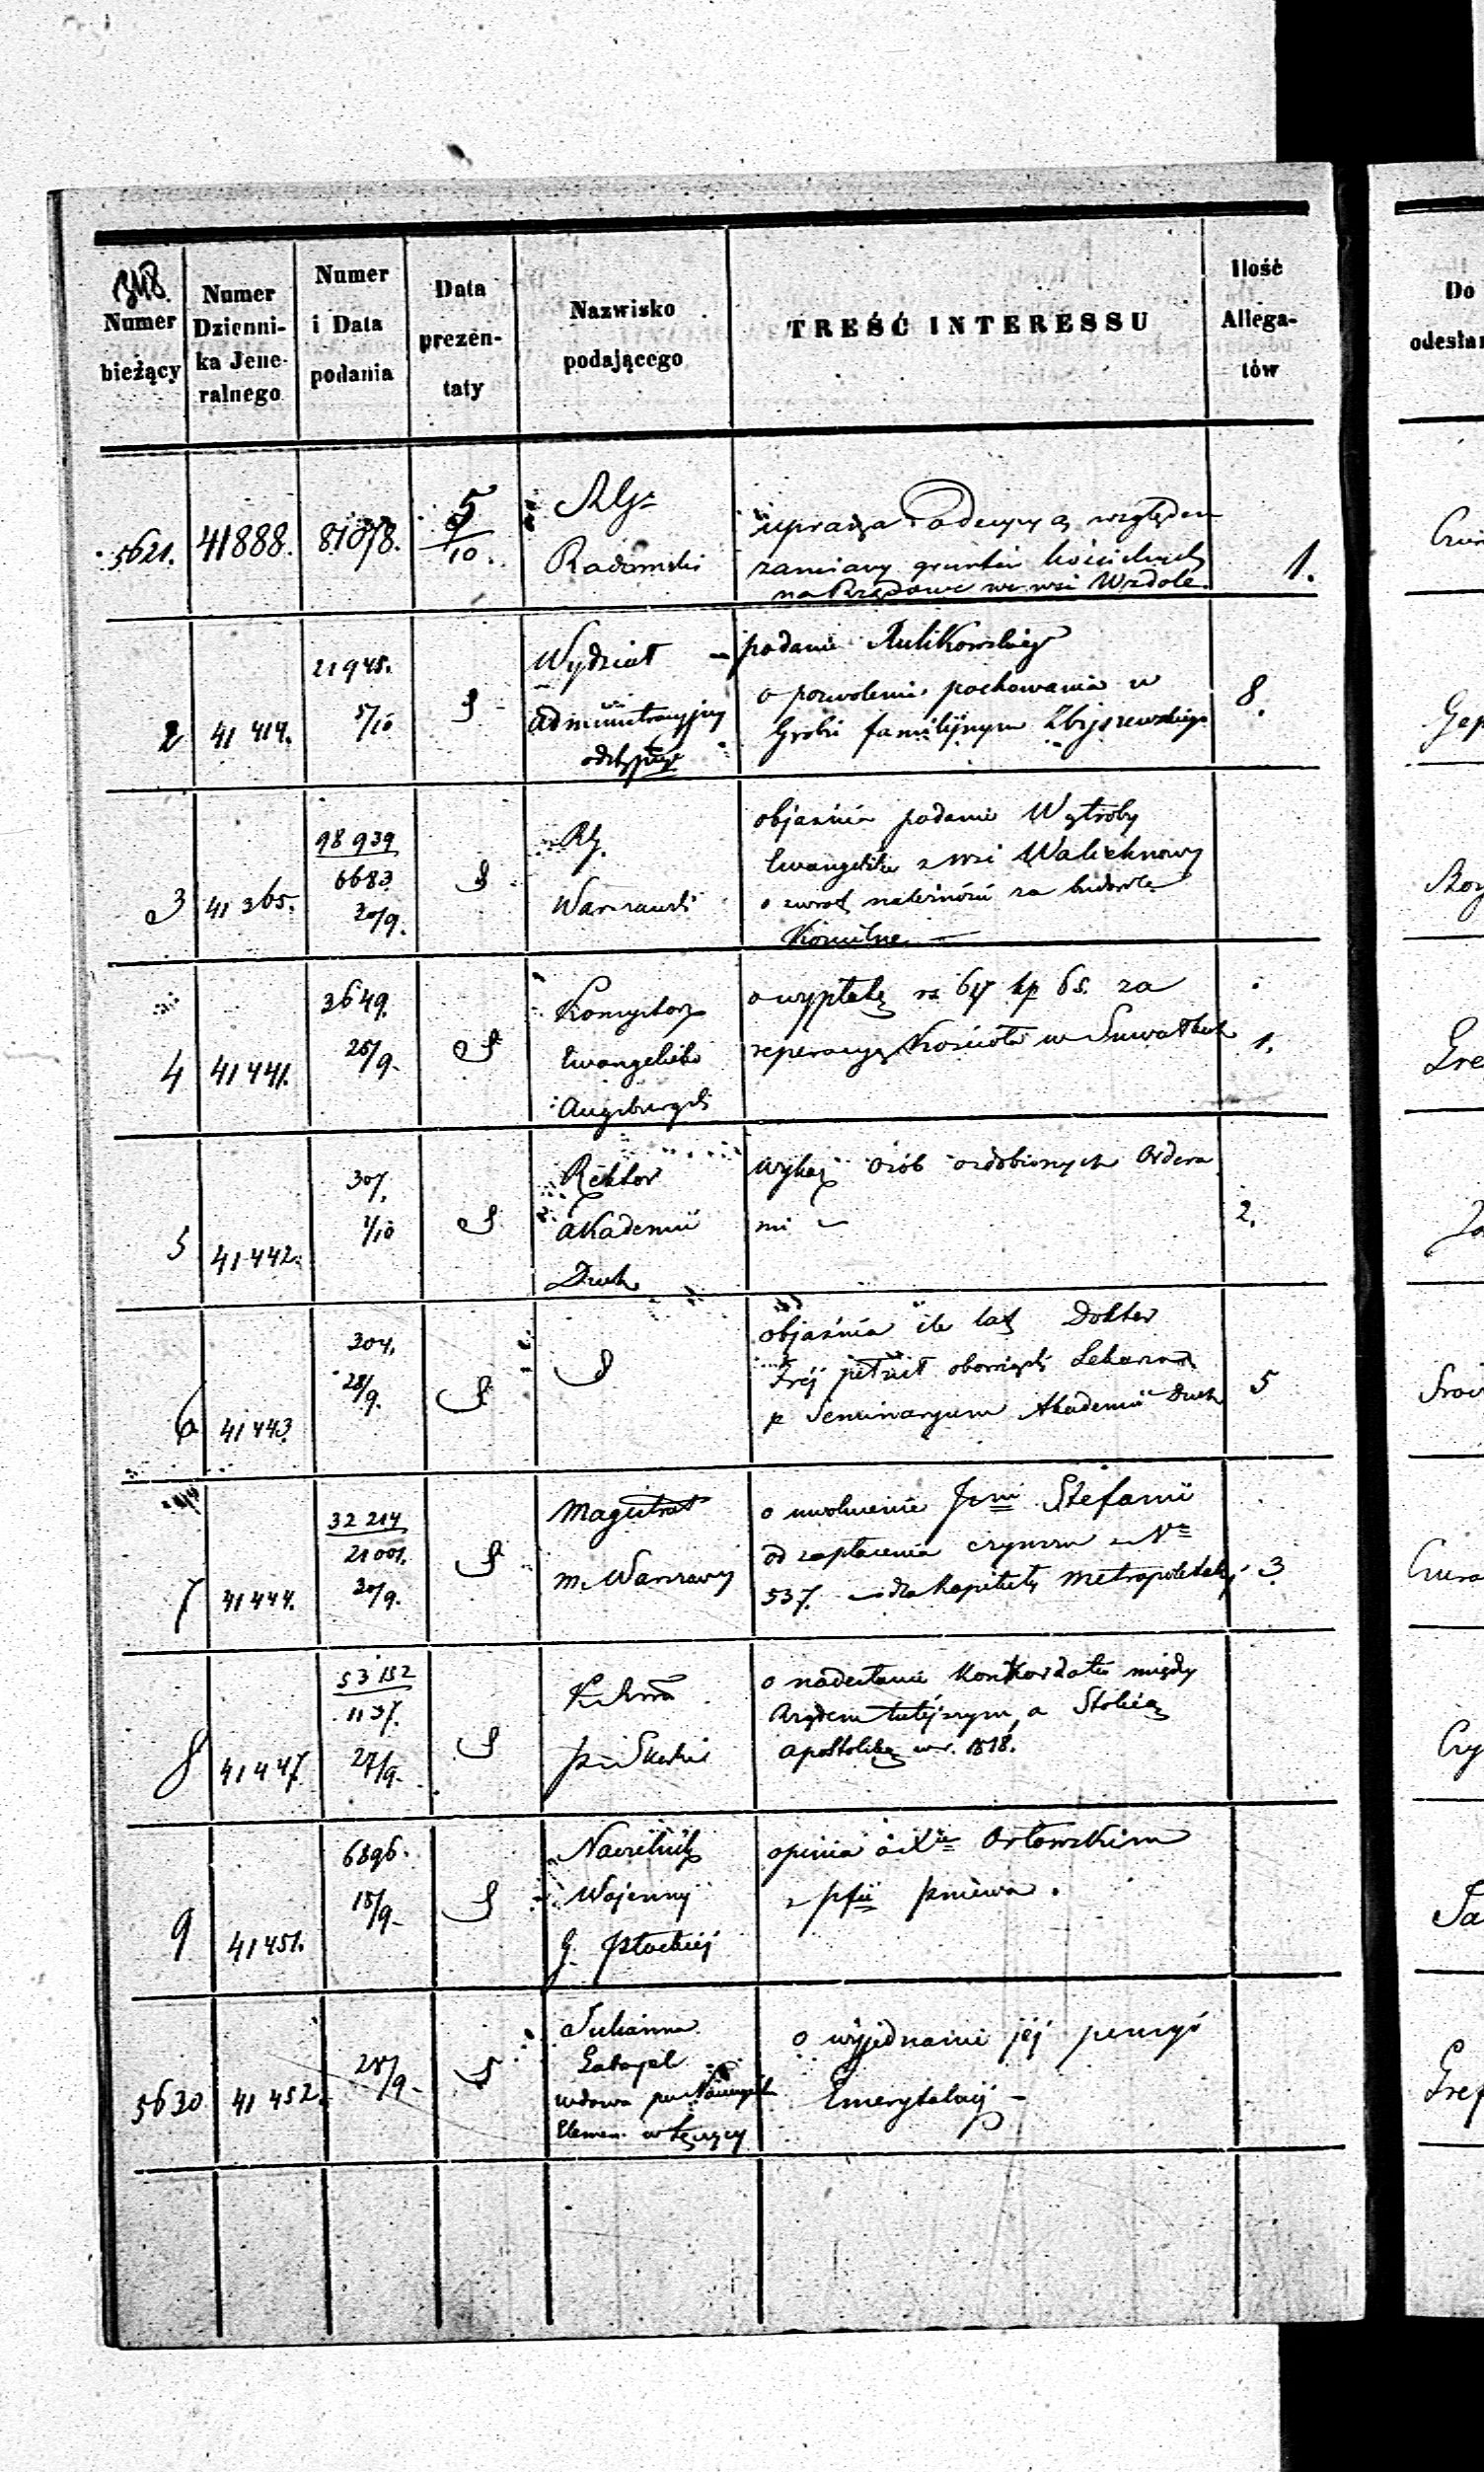 348.
Numer bieżący
Numer Dzienni-ka Jene-ralnego
Numer i Data podania
Data prezen-taty
Nazwisko podającego
TREŚĆ INTERESSU
Ilość Allega-tów
Do
odesłan
5621. 41888. 81078. 5/10
Radomski
uprasza o decyzyą względem
zamiany gruntów kościelnych
na Rządowe we wsi Wzdole.
1.
2 41 414. 21945. 5/10
Wydział
administracyjny
podanie Rulikowskiego
o pozwolenie pochowania w
Grobie familijnym Zbijszewskiego
8.
3 41 365. 98 939
6683
30/9.
Rz.
Warszawski
objaśnia podanie Wątroby
Ewangelika z wsi Walichnowy
o zwrot należności za budowlę
Kościelne
4 41 441. 3649.
26/9.
Konsystorz
Ewangelicko
Augsburgski
o wypłatę rs kp 65. za
reperacyą Kościoła w Suwałkach
1.
5 41 442. 307.
1/10
Rektor
Akademii
Duch
wykaz osób ozdobionych Ordera
mi
2.
6 41 443. 304.
28/9.
objaśnia ile lat Doktor
pełnił obowiązki Lekarza
p Seminaryum Akademii Duch
5
7 41 444. 32 214
21001.
30/9.
Magistrat
m. Warszawy
o uwolnienie Stefanii
od zapłacenia czynszu z Nru
537. dla Kapituły Metropolitaln.
3
8 41 447. 53 152
1137.
27/9.
o nadesłanie Konkordatu między
Rządem tutejszym, a Stolicą
Apostolską w r. 1818.
9 41 451. 6896.
18/9.
Naczelnik
Wojenny
G. Płockiej
opinia o Xdzu Orłowskim
z pfii Pniewa.
5630 41 452. 28/9.
Julianna
wdowa po Nauczycielu
Elemen. w Łęczycy
o wyjednanie jej pensyi
Emerytalnej